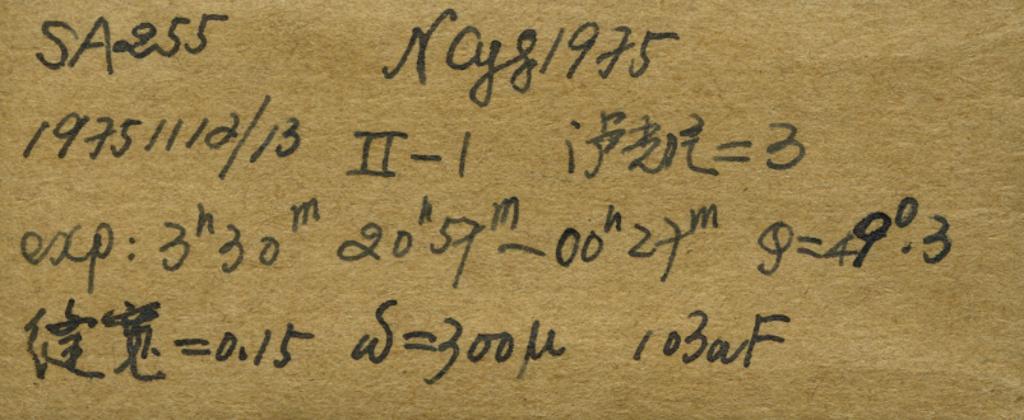 SA255 NCyg1975
19751112/13 II-1 = 3
exp: 3ʰ30ᵐ 20ʰ57ᵐ-00ʰ27ᵐ φ=49⁰.3
缝宽=0.15 ω=300μ 103aF